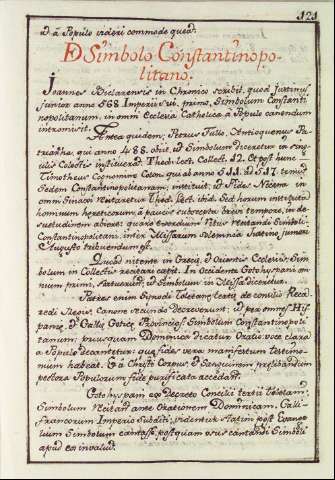 121
et â Populo videri commode quod.
De Simbolo Constantinopo-
litano.
Joannes Biclarensis in Chronico scribit, quod Justinus
Junior anno 568. Imperii sui primo, Simbolum Constanti
nopolitanum, in omni Ecclesia Catholica â Populo canendum
intromisit.
Antea quidem, Petrus Fullo, Antioquenus Pa-
triarha, qui anno 488. obiit, ut Simbolum diceretur in sin-
gulis Colectis instituerat Theod. Lect. Collect. 12. et post hunc
Timotheus Cognomine Colon: qui ab anno 511. ad 517. tenuit
Sedem Constantinopolitanam, instituit, ut Fides Nicena in
omni Sinaxi recitaretur Theod. Lect. ibid. Sed horum instituta
hominum hereticorum, â paucis suscepta brevi tempore, in de-
suetudinem abiere: quare exordium Ritus recitandi Simboli
Constantinopolitani, inter Missarum solemnia Justino Juniori
Augusto tribuendum est.
Quod nitente in Grecis, et Orientis Ecclesiis, Sim-
bolum in Collectis recitare cæpit. In Occidente Gotohyspani om
nium primi, statuerunt, ut Simbolum in Missa diceretur.
Patres enim Sinodi Toletane tertie de consilio Reca
redi Regis: Canone secundo Decreverunt: ut per omnes His
panie, et Gallie Gotice Provincias Simbolum Constantinopoli
tanum, priusquam Dominica dicatur Oratio voce clara
â Populo decantetur: quo fides vera manifestum testimo-
nium habeat. Et â Christi Corpus, et Sanguinem prelibandum
pectora Populorum fide purificata accedant.
Gotohyspani ex Decreto Concilii tertii Toletani,
Simbolum recitant ante Orationem Dominicam. Galli
Francorum Imperio subditi, videntur statim post Evange-
lium Simbolum cantasse, postquam usus cantandi Simboli
apud eos invaluit.